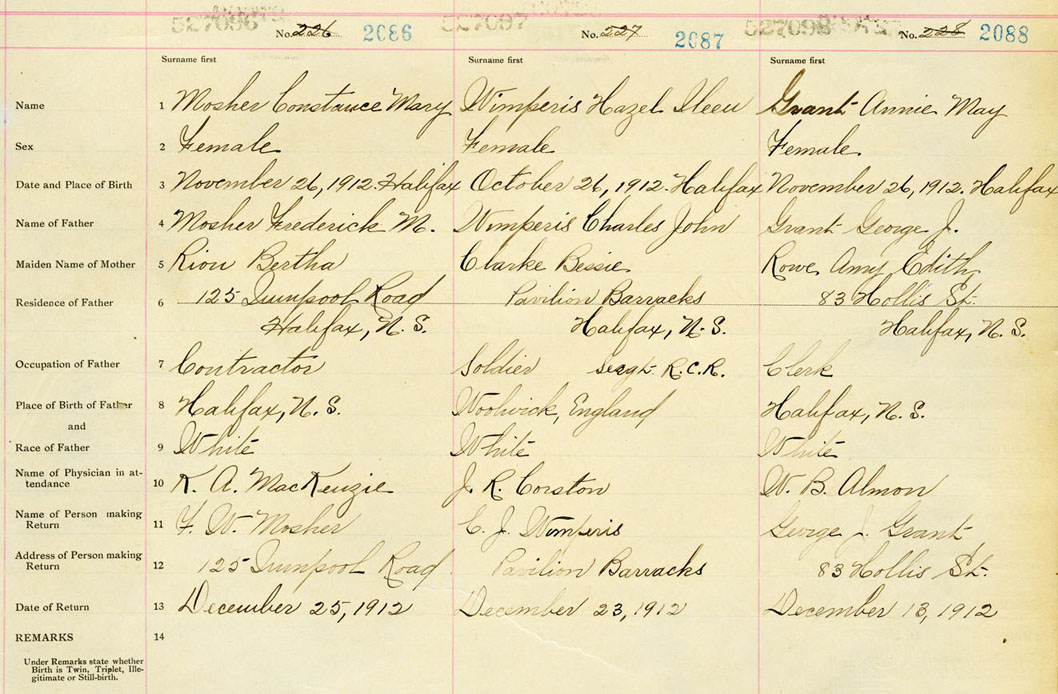 527096 527097 527098
No. 226 2086 No. 227 2087 No. 228 2088
Surname first Surname first Surname first
Name 1 Mosher Constance Mary Wimperis Hazel Ileen Grant Annie May
Sex 2 Female Female Female
Date and Place of Birth 3 November 26, 1912. Halifax October 26, 1912. Halifax November 26, 1912. Halifax
Name of Father 4 Mosher Frederick M. Wimperis Charles John Grant George J.
Maiden Name of Mother 5 Riou Bertha Clarke Bessie Rowe Amy Edith
Residence of Father 6 125 Quinpool Road Pavilion Barracks 83 Hollis St.
Halifax, N. S. Halifax, N. S. Halifax, N. S.
Occupation of Father 7 Contractor Soldier Sergt. R. C. R. Clerk
Place of Birth of Father 8 Halifax, N. S. Woolwick, England Halifax, N. S.
and
Race of Father 9 White White White
Name of Physician in at-
tendance 10 K. A. MacKenzie J. R. Corston W. B. Almon
Name of Person making
Return 11 F. W. Mosher C. J. Wimperis George J. Grant
Address of Person making
Return 12 125 Quinpool Road Pavilion Barracks 83 Hollis St.
Date of Return 13 December 25, 1912 December 23, 1912 December 13, 1912
REMARKS 14
Under Remarks state whether
Birth is Twin, Triplet, Ille-
gitimate or Still-birth.